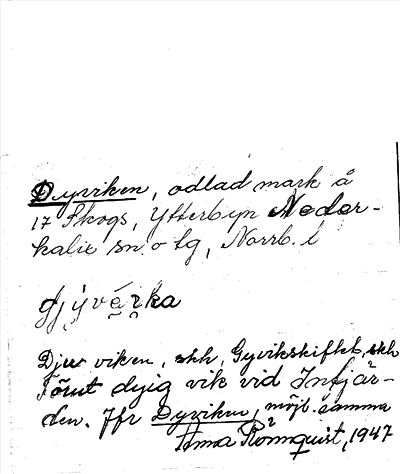 Dyviken, odlad mark å
17 Skogs, Ytterbyn Neder-
kalix sn. o tg, Norrb. l
Djuviken, skh, Gyvikskiftet, skh
Tömt dyig vik vid Infjär-
den. Jfr Dyviken, möjl. samma
Anna Rönnquist, 1947